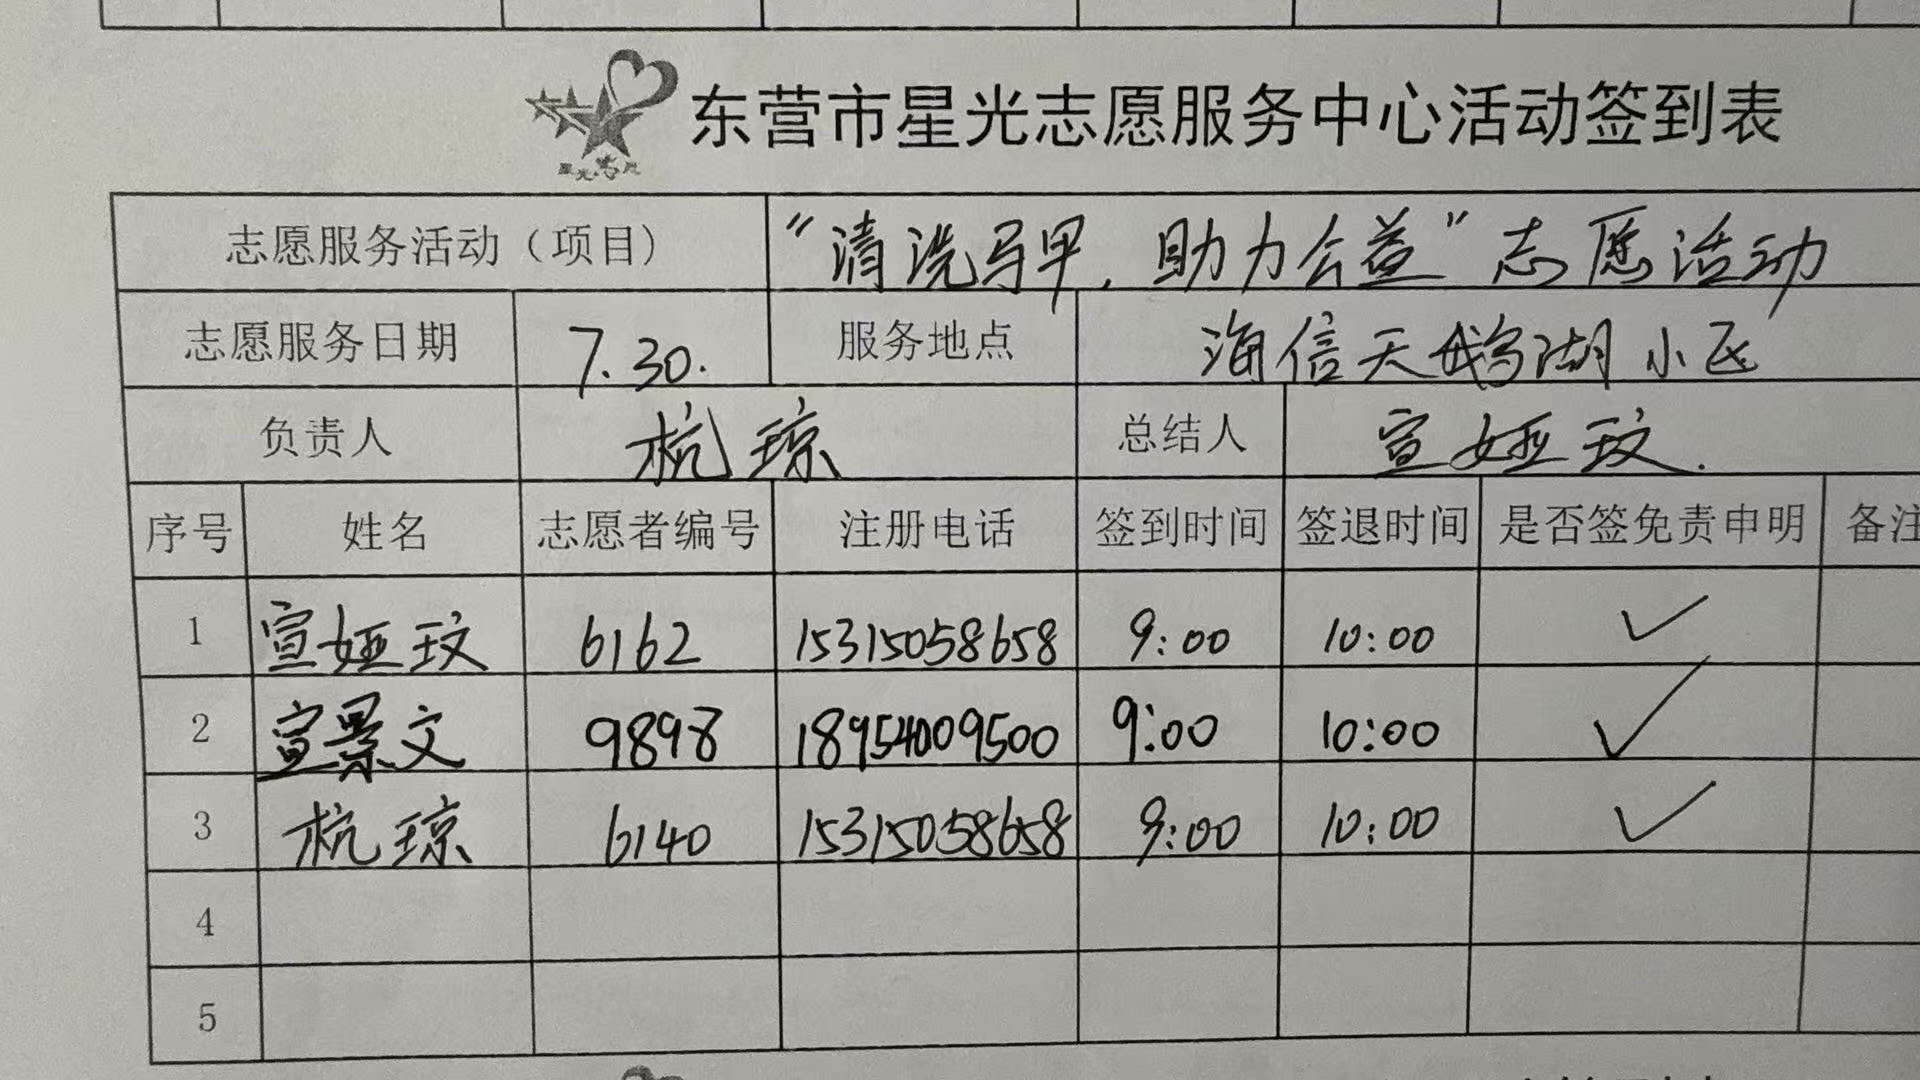 东营市星光志愿服务中心活动签到表
星光志愿
志愿服务活动（项目） “清洗马甲，助力公益”志愿活动
志愿服务日期 7.30. 服务地点 海信天鹅湖小区
负责人 杭琼 总结人 宣娅玟.
序号 姓名 志愿者编号 注册电话 签到时间 签退时间 是否签免责申明 备注
1 宣娅玟 6162 15315058658 9:00 10:00 ✓
2 宣景文 9898 18954009500 9:00 10:00 ✓
3 杭琼 6140 15315058658 9:00 10:00 ✓
4
5